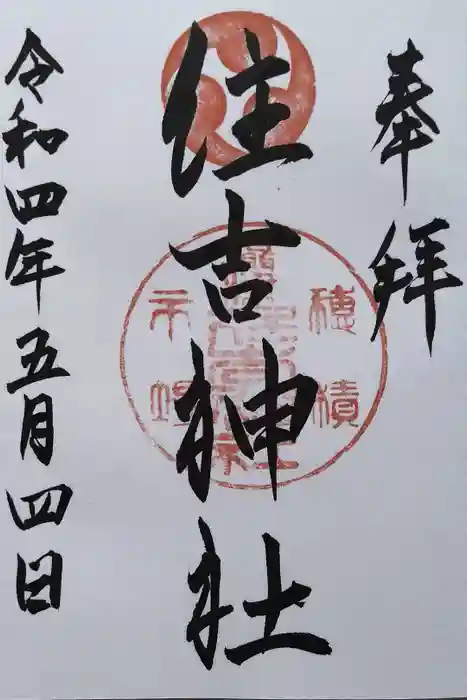 奉拝
住吉神社
穂積
市場
令和四年五月四日